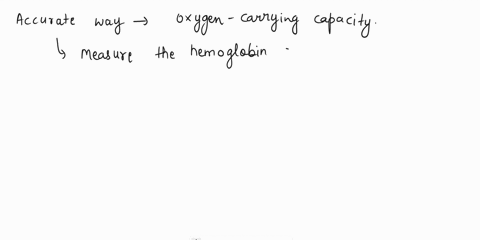 Accurate way → oxygen-carrying capacity.
↳ Measure the hemoglobin